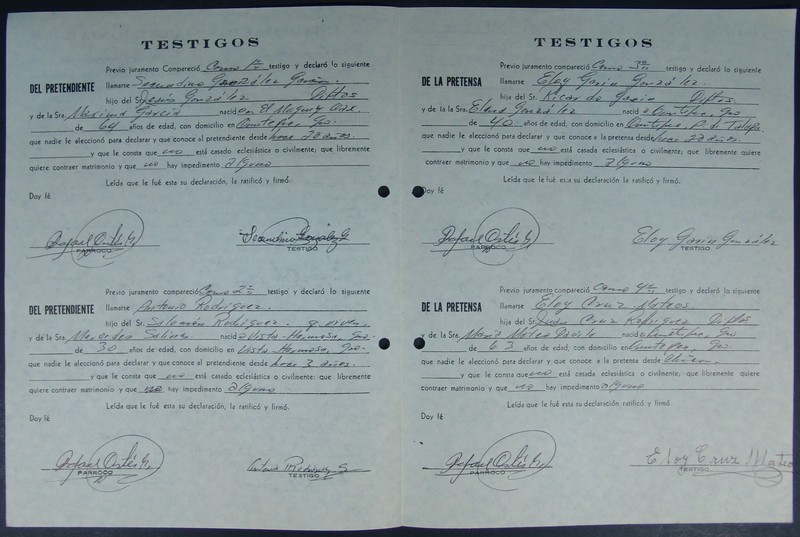 TESTIGOS
Previo juramento Compareció Como 1er testigo y declaró lo siguiente
DEL PRETENDIENTE
llamarse Secundino González García.
hijo del Sr. Jesús González Dfttos
y de la Sra. Maxima García nacid en El Maguey Oax.
de 64 años de edad, con domicilio en Contepec, Gro.
que nadie le aleccionó para declarar y que conoce al pretendiente desde hace 28 años
y que le consta que no está casado eclesiástica o civilmente; que libremente
quiere contraer matrimonio y que no hay impedimento alguno
Leída que le fué esta su declaración, la ratificó y firmó.
Doy fé
Rafael Ortés G.
PARROCO
Secundino González G
TESTIGO
Previo juramento compareció Como 2o testigo y declaró lo siguiente
DEL PRETENDIENTE
llamarse Antonio Rodríguez.
hijo del Sr. Salomón Rodríguez.
y de la Sra. Mercedes Salinas nacid a Vista Hermosa, Gro.
de 30 años de edad, con domicilio en Vista Hermosa, Gro.
que nadie le aleccionó para declarar y que conoce al pretendiente desde hace 3 años.
y que le consta que no está casado eclesiástica o civilmente: que libremente
quiere contraer matrimonio y que no hay impedimento alguno
Leída que le fué esta su declaración, la ratificó y firmó.
Doy fé
Rafael Ortés G.
PARROCO
Antonio Rodriguez S
TESTIGO
TESTIGOS
Previo juramento compareció Como 3er testigo y declaró lo siguiente
DE LA PRETENSA
llamarse Eloy García González.
hijo del Sr. Ricardo García Dfttos.
y de la Sra. Elena González nacid a Gro
de 40 años de edad, con domicilio en
que nadie le aleccionó para declarar y que conoce a la pretensa desde hace 22 años.
y que le consta que no está casada eclesiástica o civilmente; que libremente
quiere contraer matrimonio y que no hay impedimento alguno
Leída que le fué esta su declaración, la ratificó y firmó.
Doy fé
Rafael Ortés G.
PARROCO
Eloy García González
TESTIGO
Previo juramento compareció Como 4o testigo y declaró lo siguiente
DE LA PRETENSA
llamarse Eloy Cruz Mateos
hija del Sr. Juan Cruz Rodríguez Dfttos
y de la Sra. María Mateos nacid Gro
de 63 años de edad, con domicilio en Gro
que nadie le aleccionó para declarar y que conoce a la pretensa desde
y que le consta que no está casada eclesiástica o civilmente; que libremente
quiere contraer matrimonio y que no hay impedimento alguno
Leída que le fué esta su declaración, ratificó y firmó.
Doy fé
Rafael Ortés G.
PARROCO
Eloy Cruz Mateo
TESTIGO